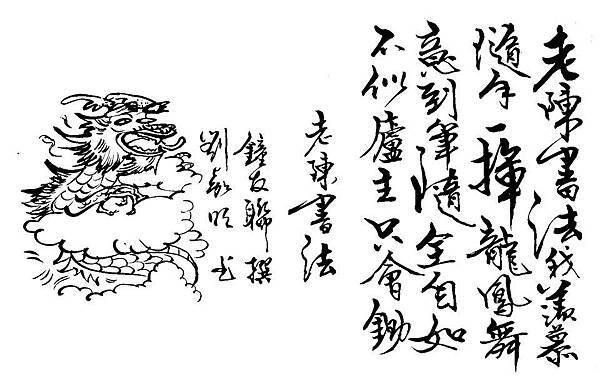 老陳書法我羨慕
隨手一揮龍鳳舞
意到筆隨全自如
不似廬主只會鋤
老陳書法
鐘友聯撰
劉明书